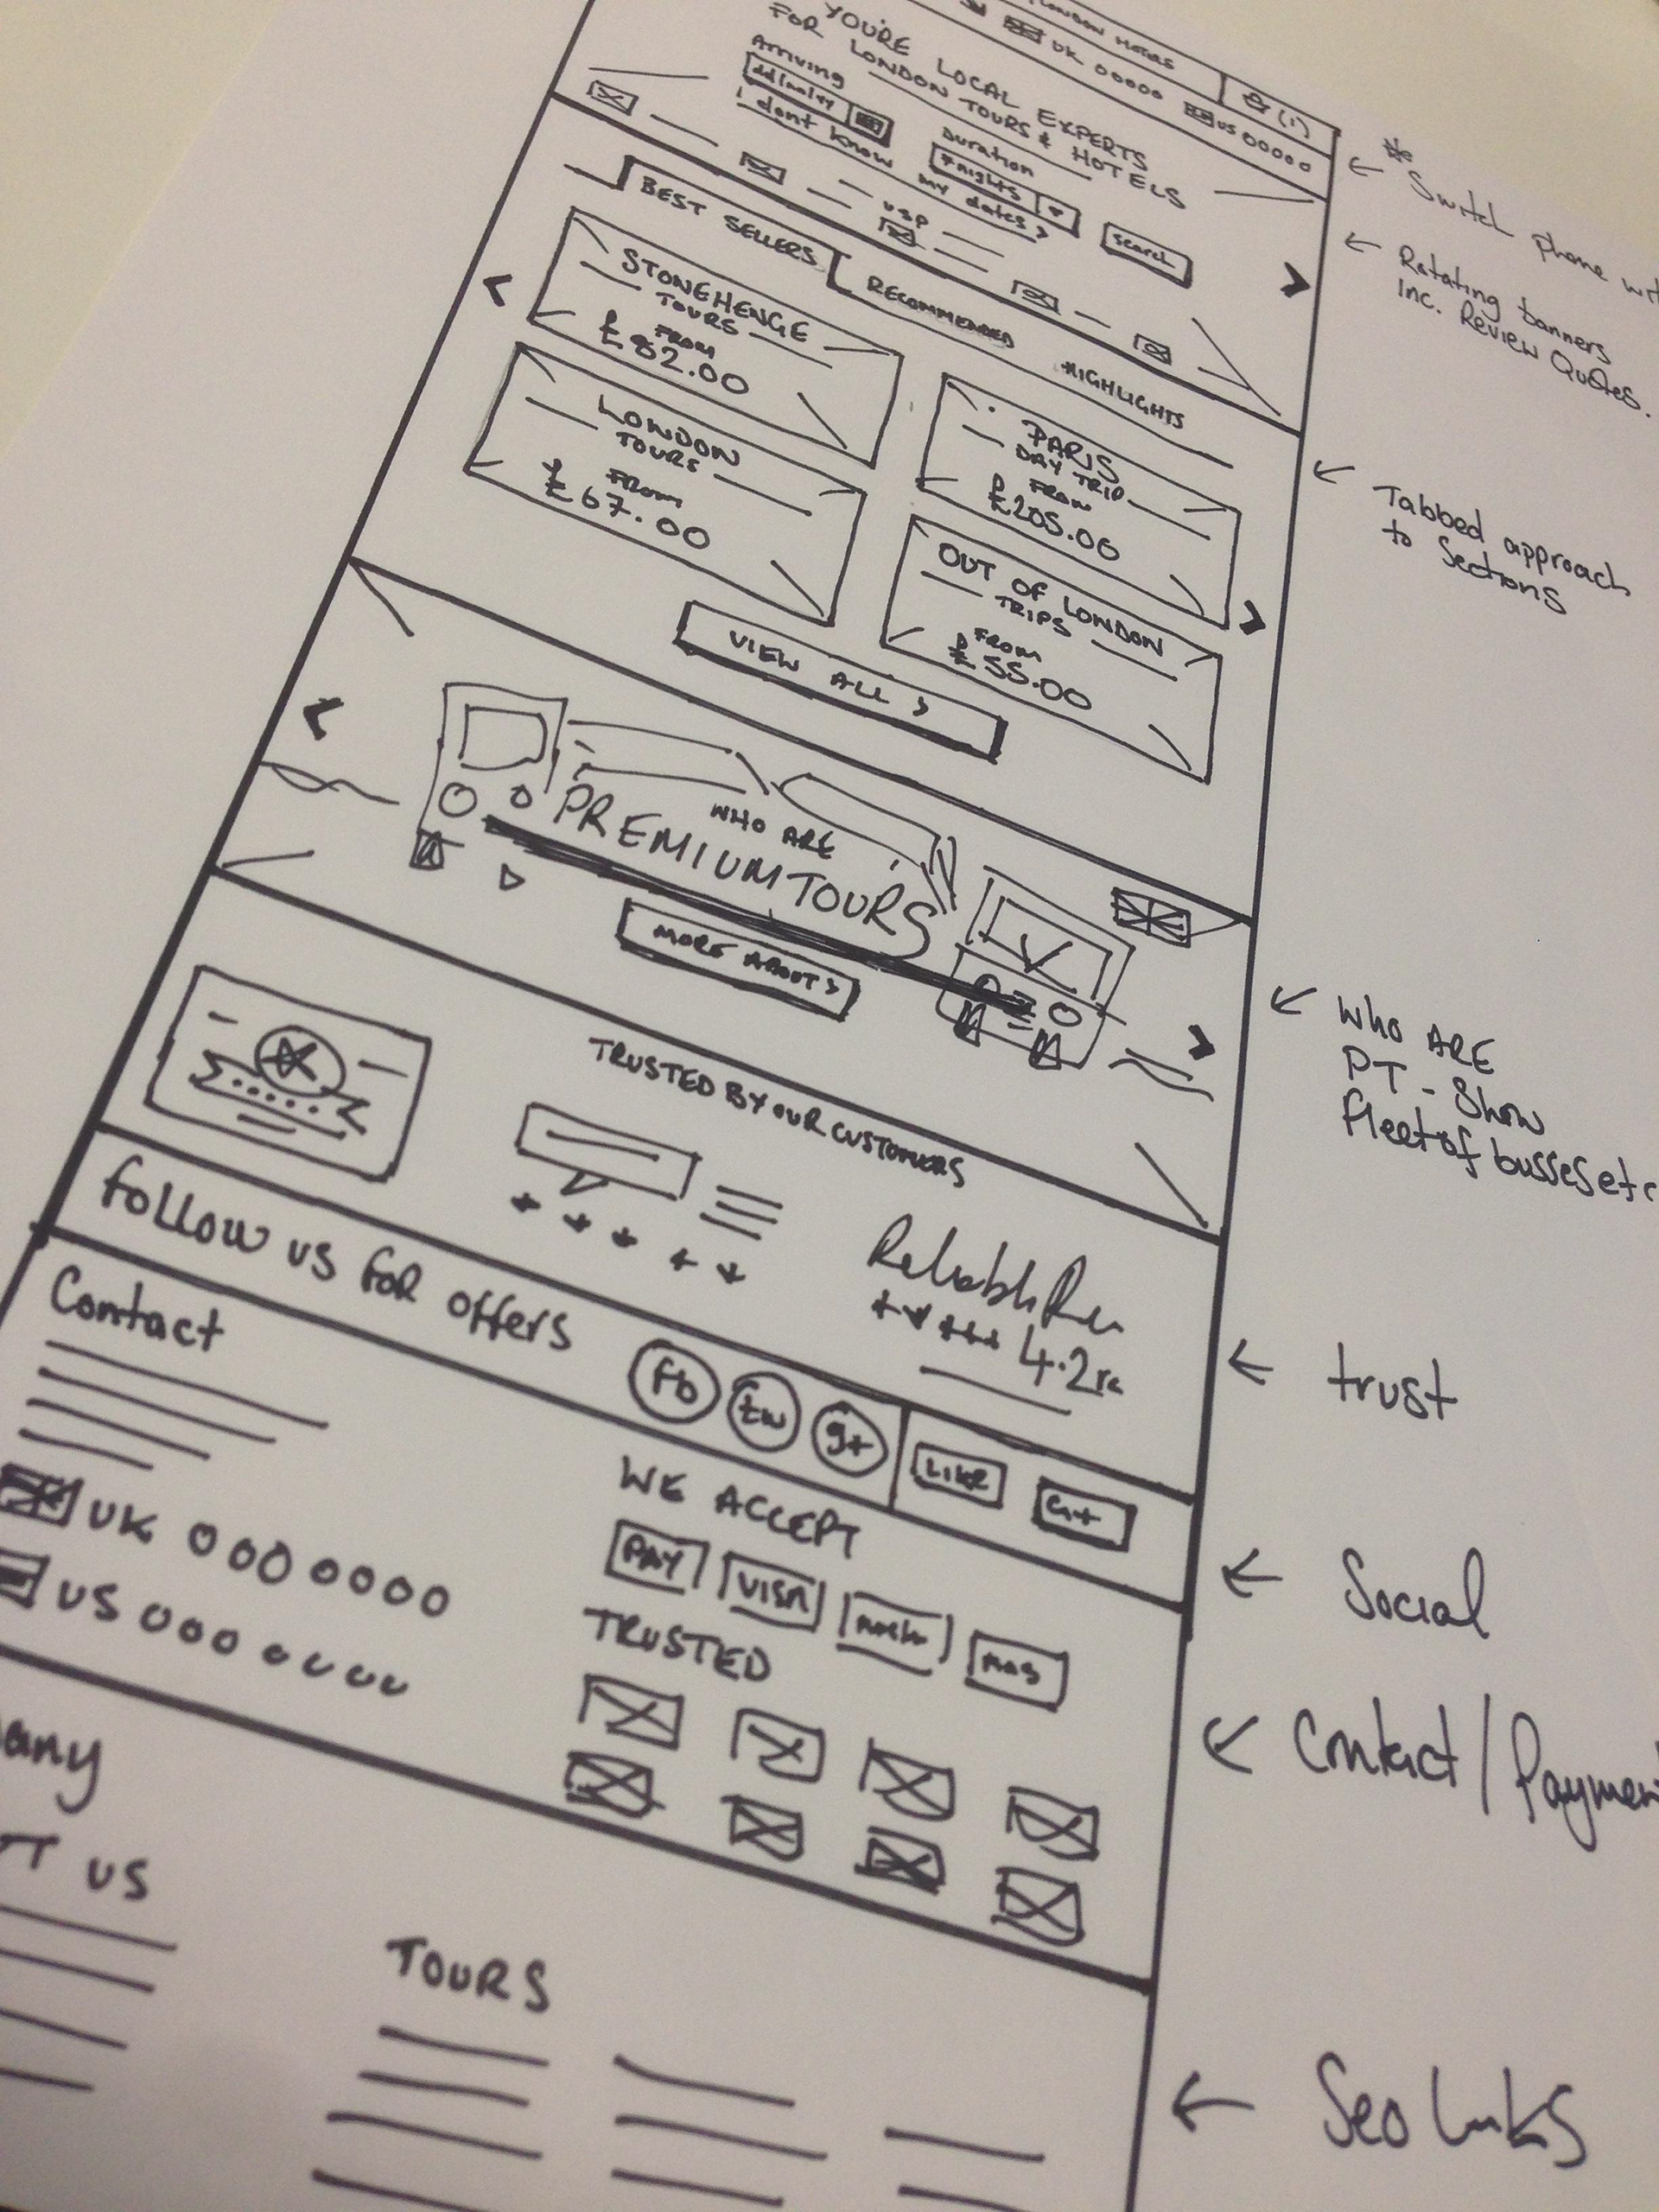 LONDON HOTELS
(1)
UK 00000
US 00000
YOU'RE LOCAL EXPERTS
FOR LONDON TOURS & HOTELS
Arriving
Duration
# nights
Search
i dont know my dates >
USP
BEST SELLERS
RECOMMENDED
HIGHLIGHTS
STONEHENGE
TOURS
FROM
£82.00
PARIS
DAY TRIP
FROM
£205.00
LONDON
TOURS
FROM
£67.00
OUT OF LONDON
TRIPS
FROM
£55.00
VIEW ALL >
WHO ARE
PREMIUM TOURS
MORE ABOUT >
TRUSTED BY OUR CUSTOMERS
4.2
Follow us for offers
fb
tw
g+
LIKE
G+
Contact
UK 0000000
US 0000000
WE ACCEPT
PAY
VISA
TRUSTED
any
T US
TOURS
Switch phone
Rotating banners
Inc. Review Quotes.
Tabbed approach
to Sections
Who ARE
PT - Show
fleet of busses etc
trust
Social
Contact / Paymen
Seo links